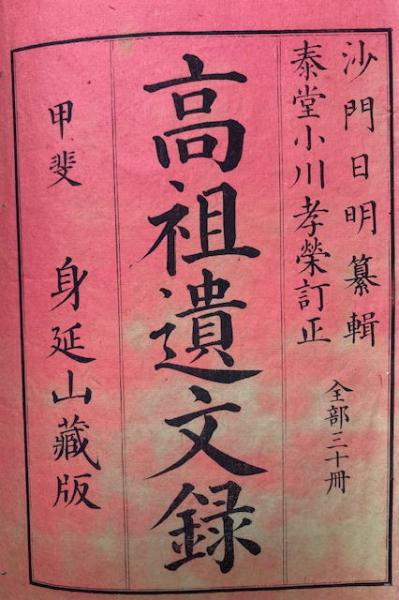 沙門日明纂輯
泰堂小川孝榮訂正
全部三十冊
高祖遺文録
甲斐 身延山藏版